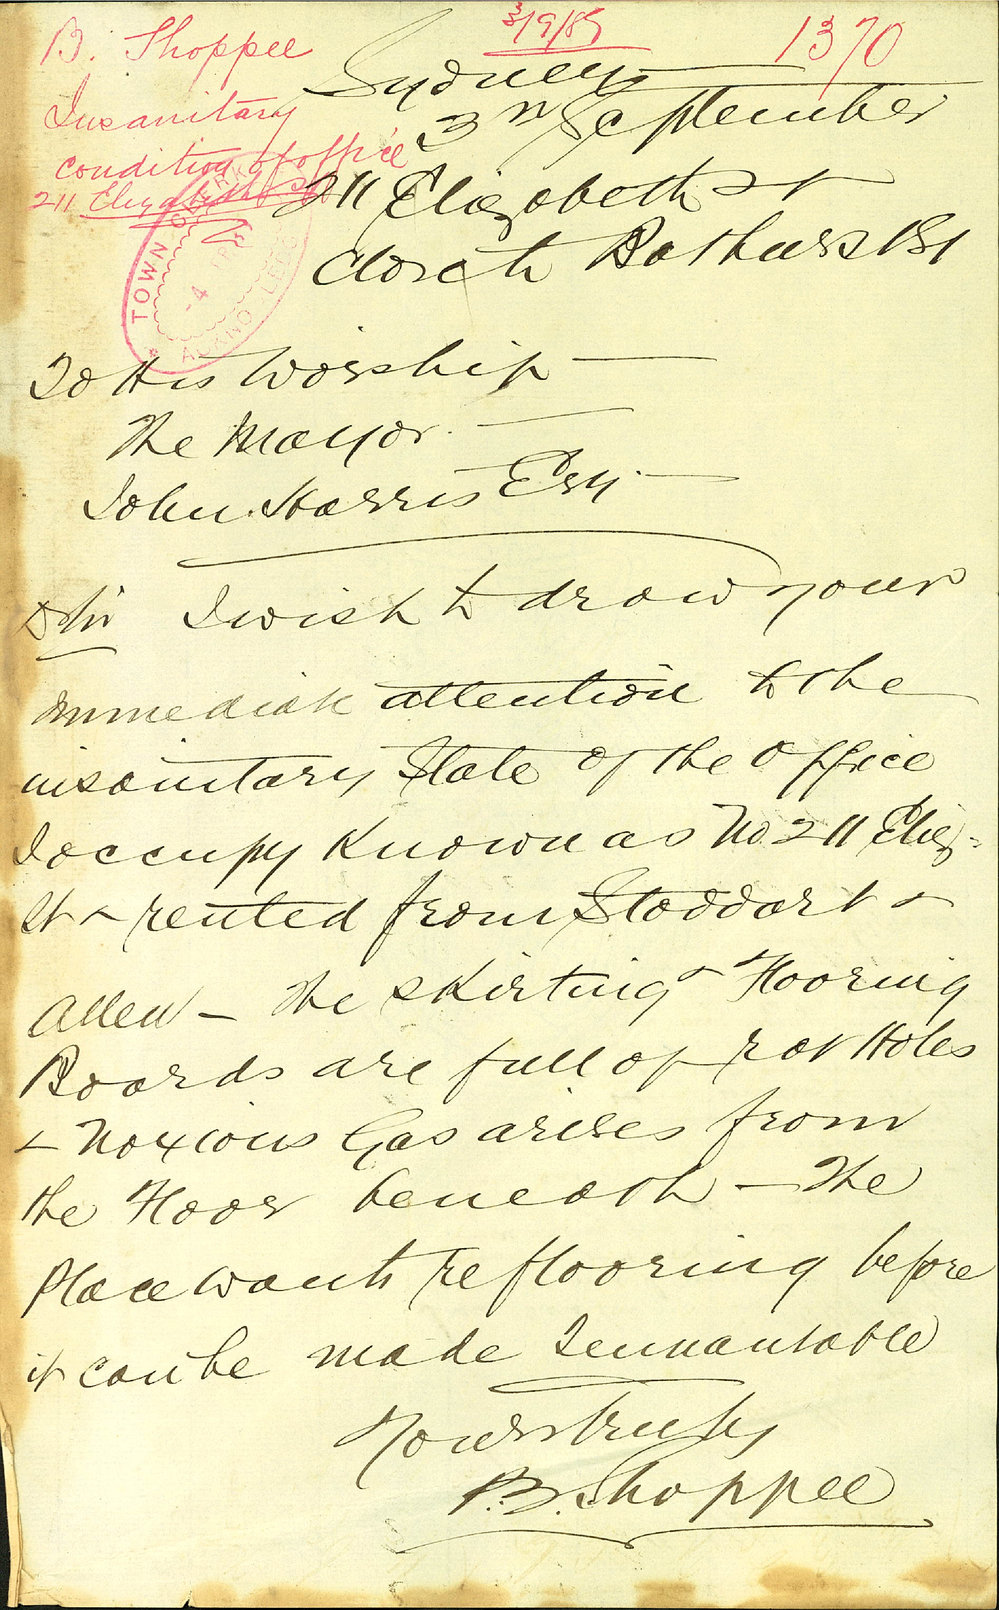 B. Shoppee
Insanitary
condition of office
211 Elizabeth St
3/9/89
1370
TOWN CLERK'S
4
Sydney
3rd September
211 Elizabeth St
Close to Bathurst St
To His Worship
The Mayor
John Harris Esq.
Sir I wish to draw your
immediate attention to the
insanitary State of the Office
I occupy Known as No 211 Eliz-
St & rented from Stoddart &
Allen – The skirting & Flooring
Boards are full of rat Holes
& Noxious Gas arises from
the Floor beneath – The
Place wants reflooring before
it can be made Tennantable
Yours truly
B. Shoppee